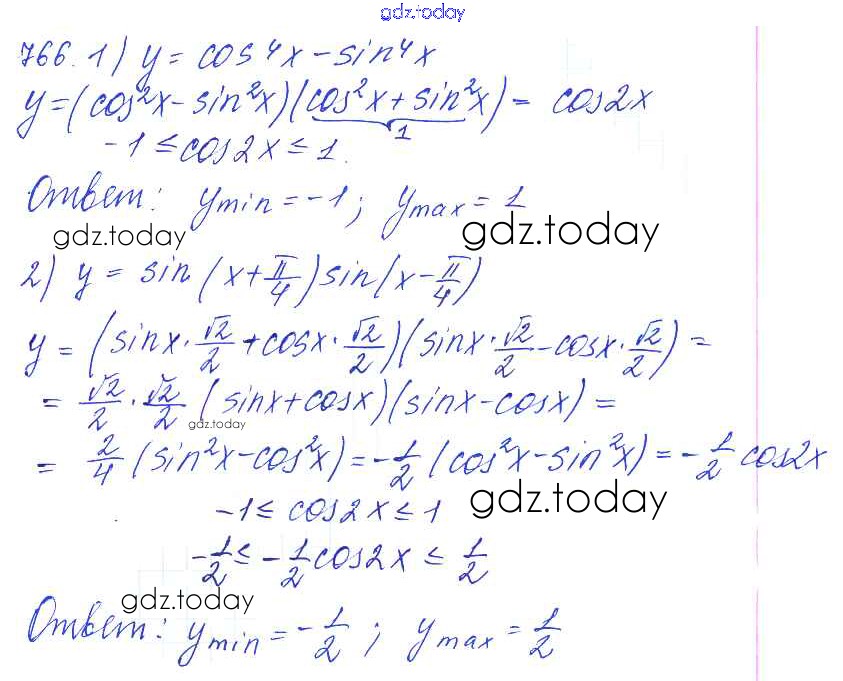 gdz.today
766. 1) y = cos⁴x - sin⁴x
y = (cos²x - sin²x)(cos²x + sin²x) = cos2x
1
-1 ≤ cos2x ≤ 1.
Ответ: y min = -1; y max = 1
gdz.today gdz.today
2) y = sin(x + π/4) sin(x - π/4)
y = (sinx · √2/2 + cosx · √2/2)(sinx · √2/2 - cosx · √2/2) =
= √2/2 · √2/2 (sinx + cosx)(sinx - cosx) =
gdz.today
= 2/4 (sin²x - cos²x) = -1/2 (cos²x - sin²x) = -1/2 cos2x
-1 ≤ cos2x ≤ 1
gdz.today
-1/2 ≤ -1/2 cos2x ≤ 1/2
gdz.today
Ответ: y min = -1/2; y max = 1/2